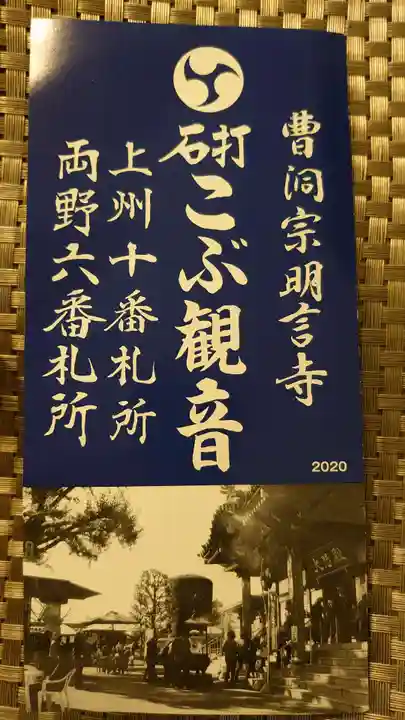 曹洞宗明言寺
石打こぶ観音
上州十番札所
両野六番札所
2020